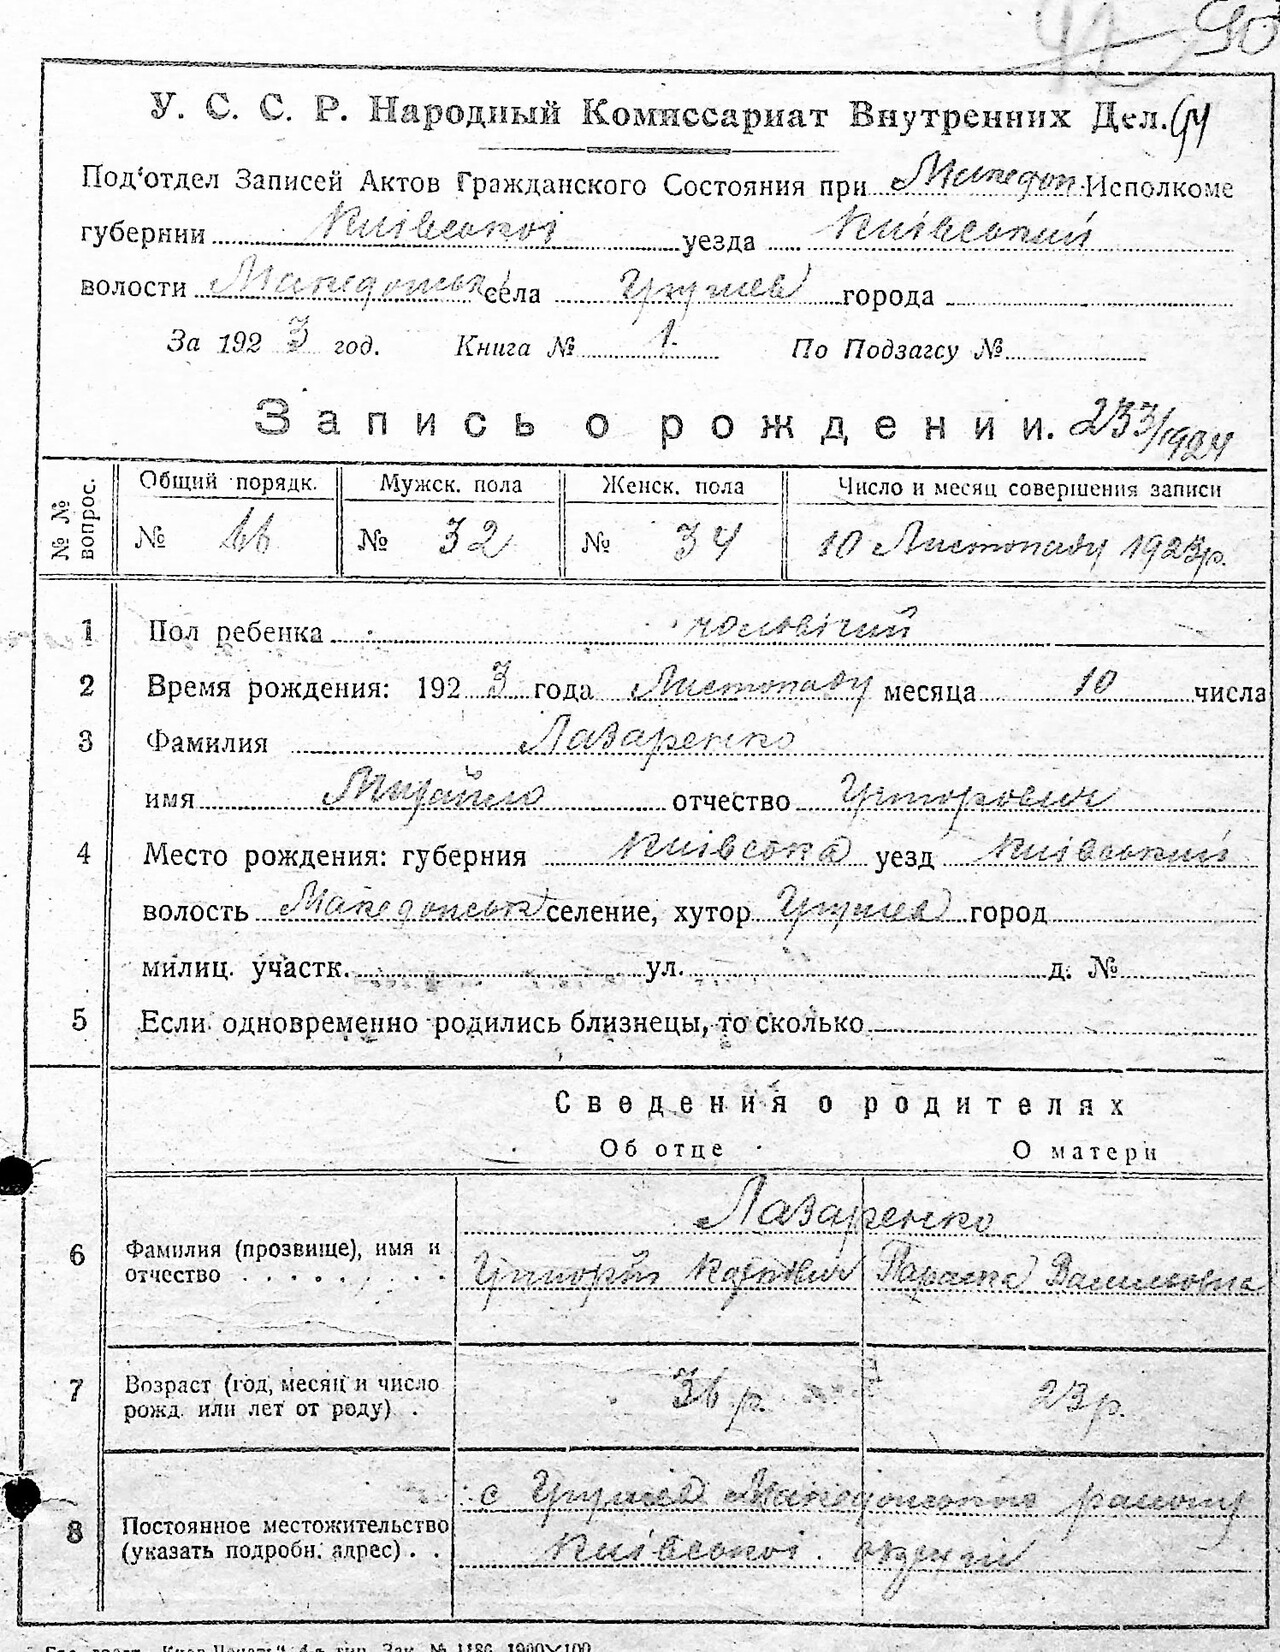 90
У. С. С. Р. Народный Комиссариат Внутренних Дел.
Под'отдел Записей Актов Гражданского Состояния при Македон. Исполкоме
губернии Київської уезда Київський
волости Македонськ села Грушев города
За 1923 год. Книга № 1. По Подзагсу №
Запись о рождении. 233/1924
№ № вопрос. Общий порядк. Мужск. пола Женск. пола Число и месяц совершения записи
№ 66 № 32 № 34 10 Листопаду 1923р.
1 Пол ребенка чоловічий
2 Время рождения: 1923 года Листопаду месяца 10 числа
3 Фамилия Лазаренко
имя Михайло отчество Григорович
4 Место рождения: губерния Київська уезд Київський
волость Македонськ селение, хутор Грушев город
милиц. участк. ул. д. №
5 Если одновременно родились близнецы, то сколько
Сведения о родителях
Об отце О матери
Лазаренко
6 Фамилия (прозвище), имя и отчество Григорій Параска Василовна
7 Возраст (год, месяц и число рожд. или лет от роду) 36 р. 23 р.
с Грушев Македонського району
8 Постоянное местожительство (указать подробн. адрес) Київської округи
Зак. № 1186. 1900×100